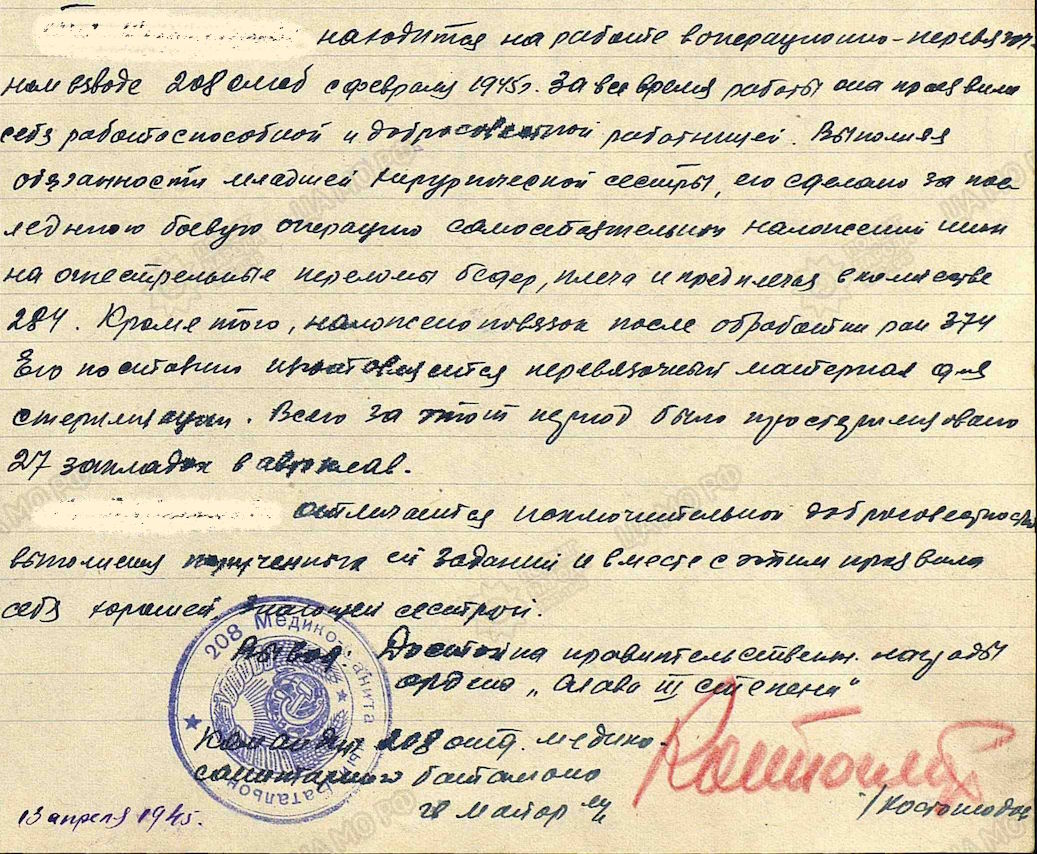 находится на работе в операционно-перевязоч-
ном взводе 208 омсб с февраля 1945г. За все время работы она проявила
себя работоспособной и добросовестной работницей. Выполняя
обязанности младшей хирургической сестры, ею сделано за пос-
леднюю боевую операцию самостоятельно наложений шин
на огнестрельные переломы бедер, плеча и предплечья в количестве
284. Кроме того, наложено повязок после обработки ран 374
Ею поставлено перевязочный материал для
стерилизации. Всего за этот период было простерилизовано
27 закладок в автоклав.
отличается исключительной добросовестностью
выполнения порученных ей заданий и вместе с этим проявила
себя хорошей знающей сестрой.
Вывод: Достойна правительственн. награды
ордена „Слава III степени"
Командир 208 отд. медико-
санитарного батальона
гв майор м/с
/Костюшов
13 апреля 1945г.
208 Медико-санитарный батальон
ЦАМО РФ